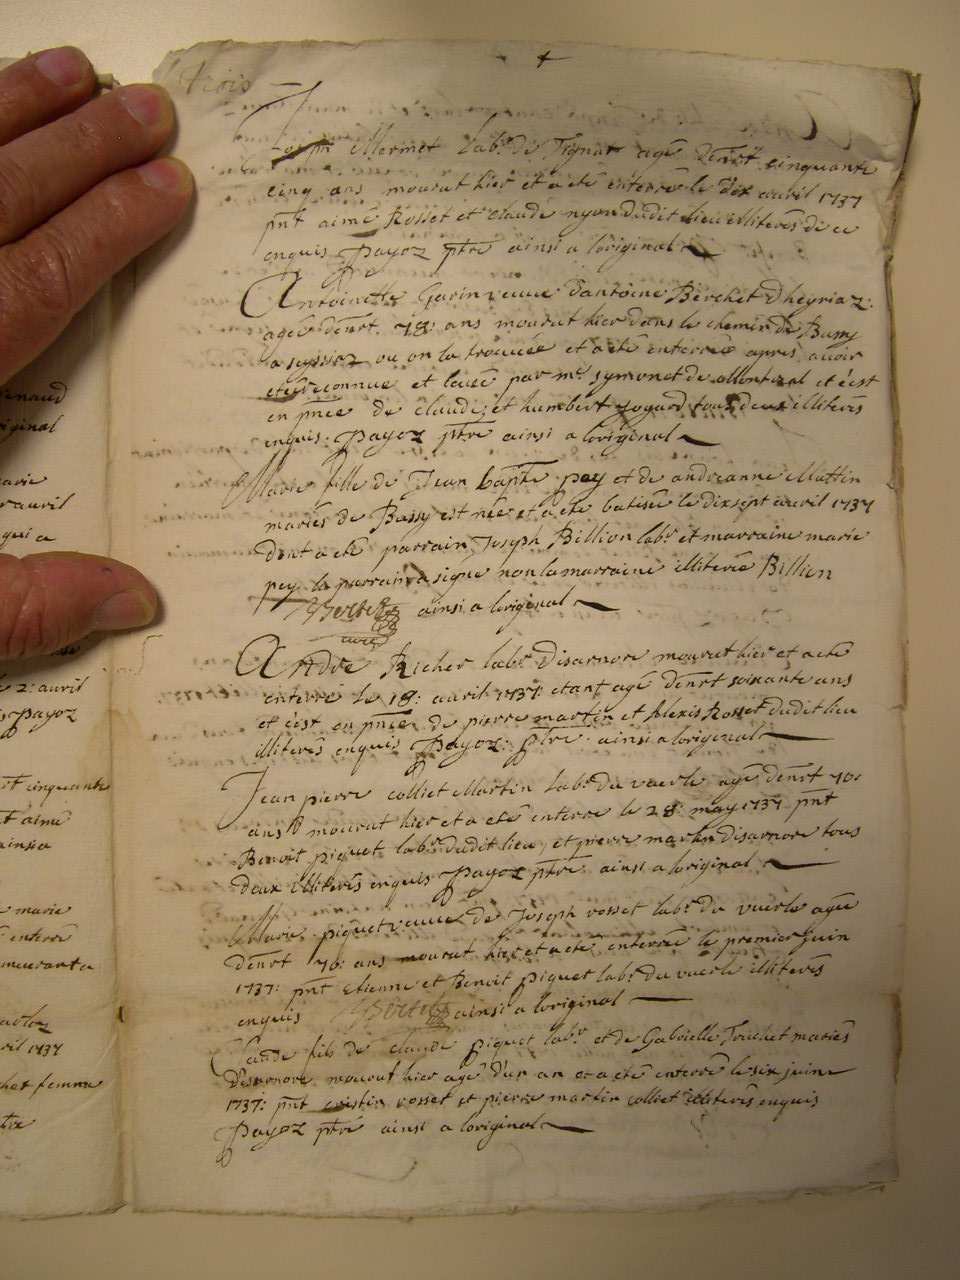 trois
Joseph Mermet lab.r de Tignat agé d'enrt cinquante
cinq ans mourut hier et a eté enterré le dix avril 1737
pnt aimé Rosset et claude nyon dudit lieu illiterés de ce
enquis payoz ptre ainsi a l'original
Antoinette Garin veuve d'antoine Berchet d'heyriaz
agée d'enrt. 78: ans mourut hier dans le chemin de Bassy
a seyssiez ou on la trouvée et a eté enterrée apres avoir
eté reconnue et levée par m.e symonet de et c'est
en pnce de claude et humbert Jogard tous deux illiterés
enquis. payoz ptre ainsi a l'original
Marie fille de Jean bapte pey et de andreanne Mattin
mariés de Bassy est née et a eté batisée le dixsept avril 1737
dont a eté parrain Joseph Billion lab.r et marraine marie
pey le parrain a signé non la marraine illiterée Billion
Bertet ainsi a l'original
curé
Andre Richer lab.r disarnore mourut hier et a eté
enterré le 18: avril 1737: etant agé d'enrt soixante ans
et c'est en pnce de pierre martin et Alexis Rosset dudit lieu
illiterés enquis payoz ptre ainsi a l'original
Jean pierre colliet Martin lab.r du vuerle agé d'enrt 70:
ans mourut hier et a eté enterré le 28: may 1737 pnt
Benoit piquet lab.r dudit lieu, et pierre martin disarnore tous
deux illiterés enquis payoz ptre ainsi a l'original
Marie piquet veuve de Joseph rosset lab.r du vuerle agée
d'enrt 76: ans mourut hier et a eté enterrée le premier juin
1737: pnt Etienne et Benoit piquet lab.r du vuerle illiterés
enquis Bertet ainsi a l'original
Claude fils de claude piquet lab.r et de Gabrielle Touchet mariés
Desarnore mourut hier agé d'un an et a eté enterré le six juin
1737: pnt cristin rosset et pierre martin colliet illiterés enquis
payoz ptré ainsi a l'original